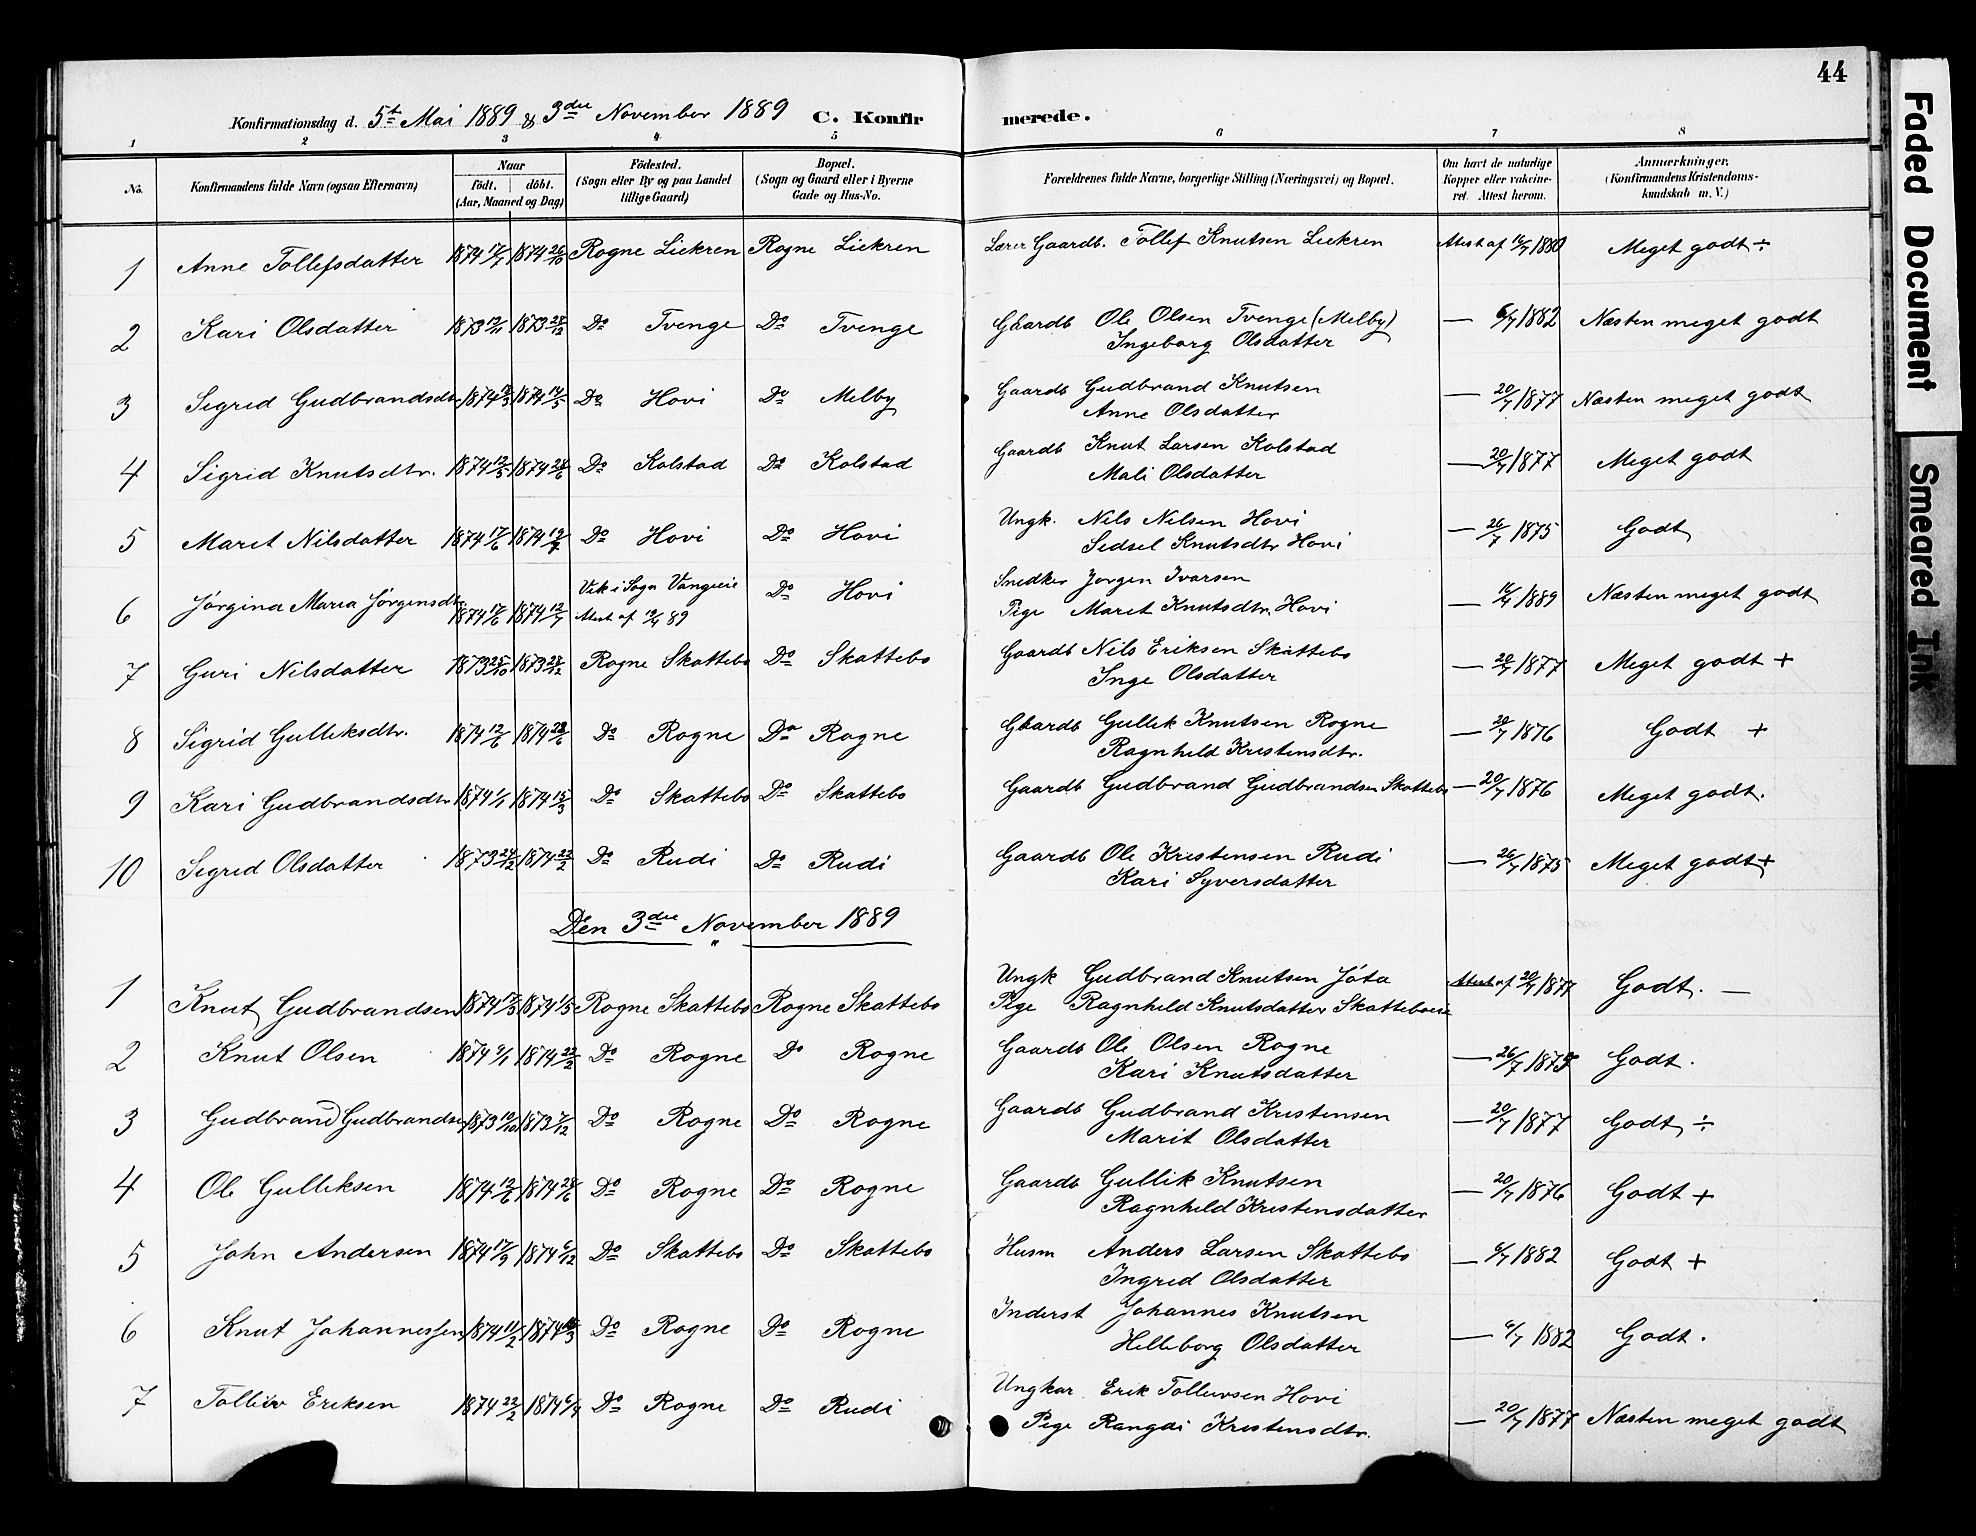 44
Konfirmationsdag d. 5te Mai 1889 & 3die November 1889 C. Konfirmerede.
1 2 3 4 5 6 7 8
No. Konfirmandens fulde Navn (ogsaa Efternavn) Naar födt. döbt. (Aar, Maaned og Dag) Födested. (Sogn eller By og paa Landet tillige Gaard) Bopæl. (Sogn og Gaard eller i Byerne Gade og Hus-No. Forældrenes fulde Navne, borgerlige Stilling (Næringsvei) og Bopæl. Om havt de naturlige Kopper eller vakcineret. Attest herom. Anmærkninger. (Konfirmandens Kristendomskundskab m. V.)
1 Anne Tollefsdatter 1874 17/7 1874 26/10 Rogne Liekren Rogne Liekren Lærer Gaardb. Tollef Knutsen Liekren Attest af 1880 Meget godt ÷
2 Kari Olsdatter 1873 12/11 1873 28/12 Do Tvenge Do Tvenge Gaardb Ole Olsen Tvenge (Melby) — 6/7 1882 Næsten meget godt
Ingeborg Olsdatter
3 Sigrid Gudbrandsdtr 1874 1874 14/5 Do Hovi Do Melby Gaardb Gudbrand Knutsen — 20/7 1877 Næsten meget godt
Anne Olsdatter
4 Sigrid Knutsdtr. 1874 12/5 1874 28/6 Do Kolstad Do Kolstad Gaardb Knut Larsen Kolstad — 20/7 1877 Meget godt
Mali Olsdatter
5 Marit Nilsdatter 1874 17/6 1874 12/7 Do Hovi Do Hovi Ungk. Nils Nilsen Hovi — 26/7 1875 Godt
Sidsel Knutsdtr Hovi
6 Jørgina Maria Jørgensdtr 1874 17/6 1874 12/7 Vik i Sogn Vangseie Do Hovi Snedker Jørgen Ivarsen — 1889 Næsten meget godt
Attest af 89 Pige Marit Knutsdtr. Hovi
7 Guri Nilsdatter 1873 25/10 1873 28/12 Rogne Skattebo Do Skattebo Gaardb Nils Eriksen Skattebo — 20/7 1877 Meget godt +
Inge Olsdatter
8 Sigrid Gulliksdtr. 1874 12/6 1874 28/6 Do Rogne Do Rogne Gaardb Gullik Knutsen Rogne — 20/7 1876 Godt +
Ragnhild Kristensdtr.
9 Kari Gudbrandsdtr 1874 1/1 1874 15/3 Do Skattebo Do Skattebo Gaardb Gudbrand Gudbrandsen Skattebo — 20/7 1876 Meget godt.
10 Sigrid Olsdatter 1873 24/12 1874 22/2 Do Rudi Do Rudi Gaardb Ole Kristensen Rudi — 26/7 1875 Meget godt +
Kari Syversdatter
Den 3die November 1889
1 Knut Gudbrandsen 1874 1874 1/5 Rogne Skattebo Rogne Skattebo Ungk Gudbrand Knutsen Jóta Attest af 20/7 1877 Godt. —
Pige Ragnhild Knutsdatter Skatteboeie
2 Knut Olsen 1874 9/1 1874 22/2 Do Rogne Do Rogne Gaardb Ole Olsen Rogne — 26/7 1875 Godt.
Kari Knutsdatter
3 Gudbrand Gudbrandsen 1873 19/10 1873 7/12 Do Rogne Do Rogne Gaardb Gudbrand Kristensen — 20/7 1877 Godt ÷
Marit Olsdatter
4 Ole Gulliksen 1874 12/6 1874 28/6 Do Rogne Do Rogne Gaardb Gullik Knutsen — 20/7 1876 Godt +
Ragnhild Kristensdatter
5 John Andersen 1874 17/9 1874 6/12 Do Skattebo Do Skattebo Husm Anders Larsen Skattebo — 6/7 1882 Godt +
Ingrid Olsdatter
6 Knut Johannessen 1874 11/2 1874 Do Rogne Do Rogne Inderst Johannes Knutsen — 6/7 1882 Godt.
Helleborg Olsdatter
7 Tolleiv Eriksen 1874 22/2 1874 6/4 Do Rogne Do Rudi Ungkar Erik Tolleivsen Hovi — 20/7 1877 Næsten meget godt
Pige Rangdi Kristensdtr.
Faded Document
Smeared Ink